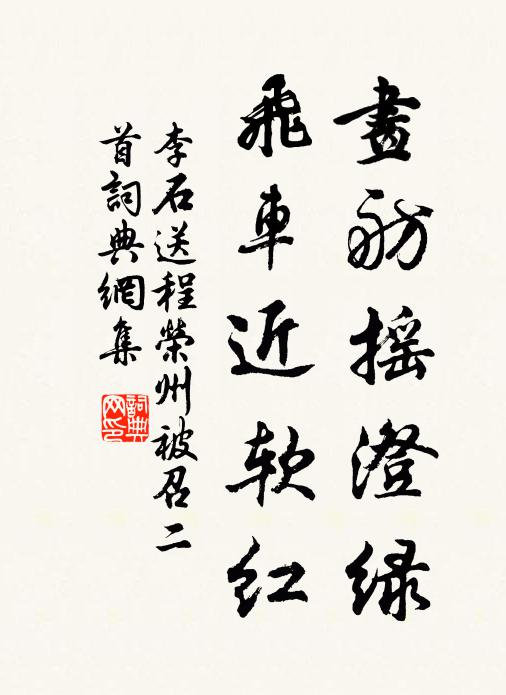 畫舫搖澄綠
飛車近軟紅
李石送程榮州被召二
首詞典網集
詞典
网印